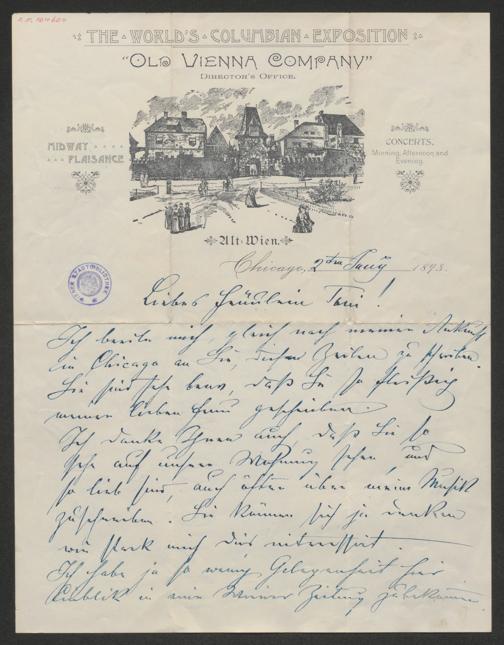 THE WORLD'S COLUMBIAN EXPOSITION
"OLD VIENNA COMPANY"
DIRECTOR'S OFFICE.
MIDWAY
PLAISANCE
CONCERTS.
Morning, Afternoon and
Evening.
Alt-Wien.
Chicago, 2ten Juny 1893.
Liebes Fräulein Toni!
Ich beeile mich, gleich nach meiner Ankunft
in Chicago an Sie, diese Zeilen zu schreiben.
Sie sind sehr brav, daß Sie so fleißig
meiner lieben Frau geschrieben.
Ich danke Ihnen auch, daß Sie so
sehr auf unsere Wohnung sehen, und
so lieb sind, auch öfter über meine Musik
zuschreiben. Sie können sich ja denken
wie stark mich dies interessirt.
Ich habe ja so wenig Gelegenheit hier
Einblik in eine Wiener Zeitung zubekommen.